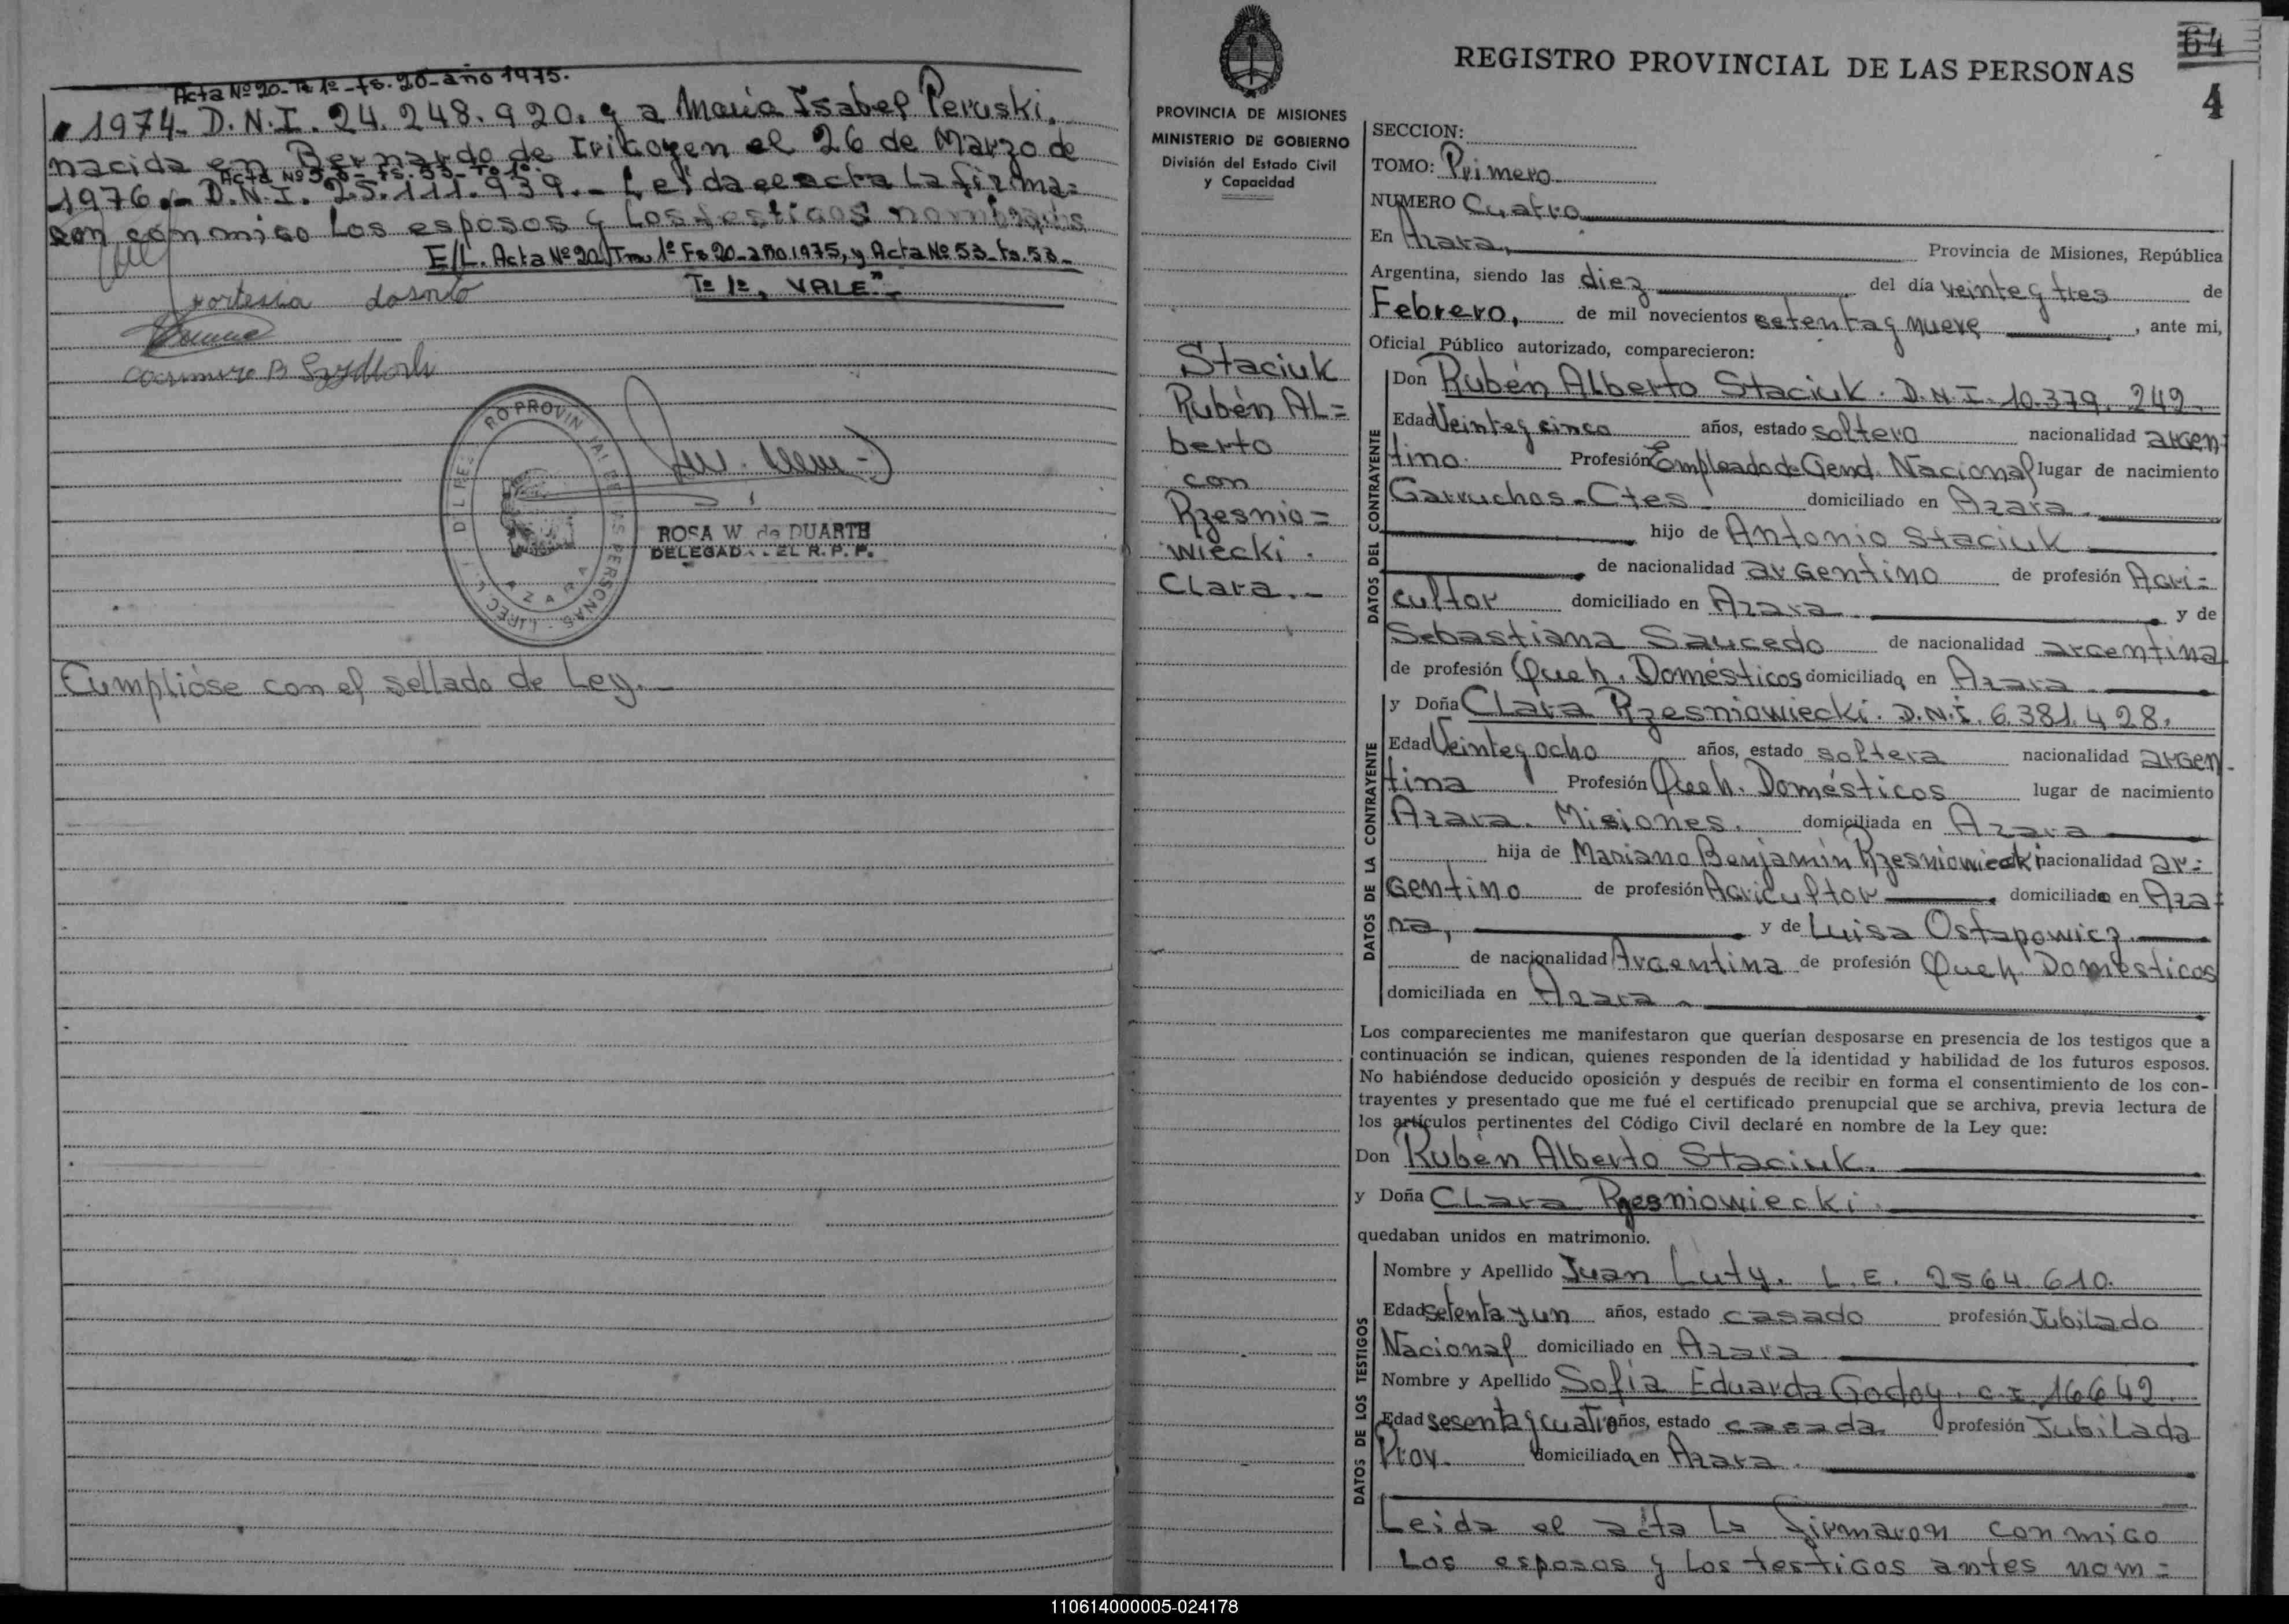 Acta Nº 20- Tº 1º - fs. 20- año 1975.
1974- D.N.I. 24.248.920. y a María Isabel Peruski,
nacida en Bernardo de Irigoyen el 26 de Marzo de
Acta Nº 53- fs. 53- Tº 1º.
1976.- D.N.I. 25.111.939.- Leída el acta la firma=
ron conmigo los esposos y los testigos nombrados
E/L. Acta Nº 20 Tmo 1º Fs 20- año 1975, y Acta Nº 53- fs. 53-
Tº 1º, VALE"-
Casimiro B
REGISTRO PROVINCIAL DE LAS PERSONAS
AZARA
ROSA W. de DUARTE
DELEGADA DEL R. P. P.
Cumplióse con el sellado de Ley.-
64
4
REGISTRO PROVINCIAL DE LAS PERSONAS
PROVINCIA DE MISIONES
MINISTERIO DE GOBIERNO
División del Estado Civil
y Capacidad
Staciuk
Rubén Al=
berto
con
Rzesnio=
wiecki.
Clara.-
SECCION:
TOMO: Primero
NUMERO Cuatro
En Azara, Provincia de Misiones, República
Argentina, siendo las diez del día veinte y tres de
Febrero, de mil novecientos setenta y nueve, ante mi,
Oficial Público autorizado, comparecieron:
DATOS DEL CONTRAYENTE
Don Rubén Alberto Staciuk. D.N.I. 10.379.242.
Edad Veinte y cinco años, estado soltero nacionalidad argen-
tino. Profesión Empleado de Gend. Nacional lugar de nacimiento
Garruchos-Ctes. domiciliado en Azara.
hijo de Antonio Staciuk
de nacionalidad argentino de profesión Agri=
cultor domiciliado en Azara y de
Sebastiana Saucedo de nacionalidad argentina
de profesión Queh. Domésticos domiciliada en Azara.
DATOS DE LA CONTRAYENTE
y Doña Clara Rzesniowiecki. D.N.I. 6.381.428.
Edad Veinte y ocho años, estado soltera nacionalidad argen-
tina Profesión Queh. Domésticos lugar de nacimiento
Azara. Misiones. domiciliada en Azara
hija de Mariano Benjamín Rzesniowiecki nacionalidad ar=
gentino de profesión Agricultor domiciliado en Aza=
ra, y de Luisa Ostapowicz.
de nacionalidad Argentina de profesión Queh. Domésticos
domiciliada en Azara.
Los comparecientes me manifestaron que querían desposarse en presencia de los testigos que a
continuación se indican, quienes responden de la identidad y habilidad de los futuros esposos.
No habiéndose deducido oposición y después de recibir en forma el consentimiento de los con-
trayentes y presentado que me fué el certificado prenupcial que se archiva, previa lectura de
los artículos pertinentes del Código Civil declaré en nombre de la Ley que:
Don Rubén Alberto Staciuk.
y Doña Clara Rzesniowiecki.
quedaban unidos en matrimonio.
DATOS DE LOS TESTIGOS
Nombre y Apellido Juan Luty. L.E. 2564.610.
Edad setenta y un años, estado casado profesión Jubilado
Nacional domiciliado en Azara
Nombre y Apellido Sofía Eduarda Godoy. C.I. 16642.
Edad sesenta y cuatro años, estado casada profesión Jubilada
Prov. domiciliada en Azara.
Leída el acta la firmaron conmigo
Los esposos y los testigos antes nom=
110614000005-024178